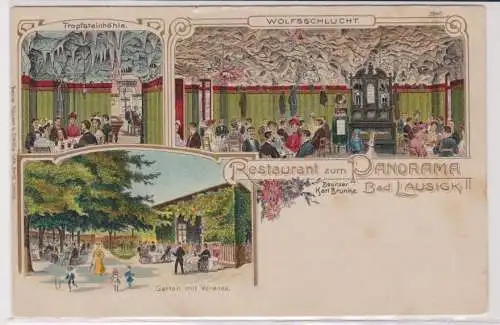 Tropfsteinhöhle.
WOLFSSCHLUCHT.
Restaurant zum PANORAMA
Besitzer
Karl Brunke.
Bad LAUSIGK
Garten mit Veranda.